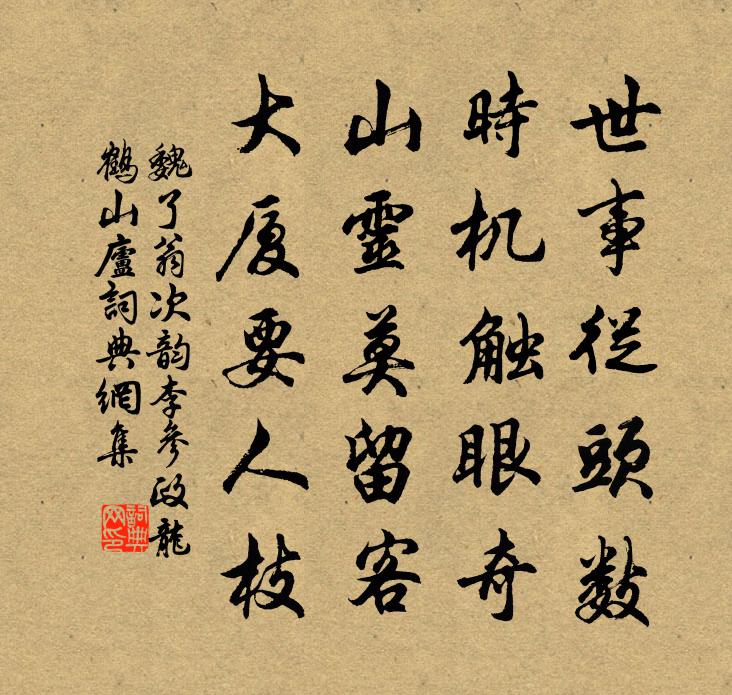 世事從頭数
時机触眼奇
山靈莫留客
大厦要人枝
魏了翁次韵李參政龍
鶴山廬詞典網集
詞典网印